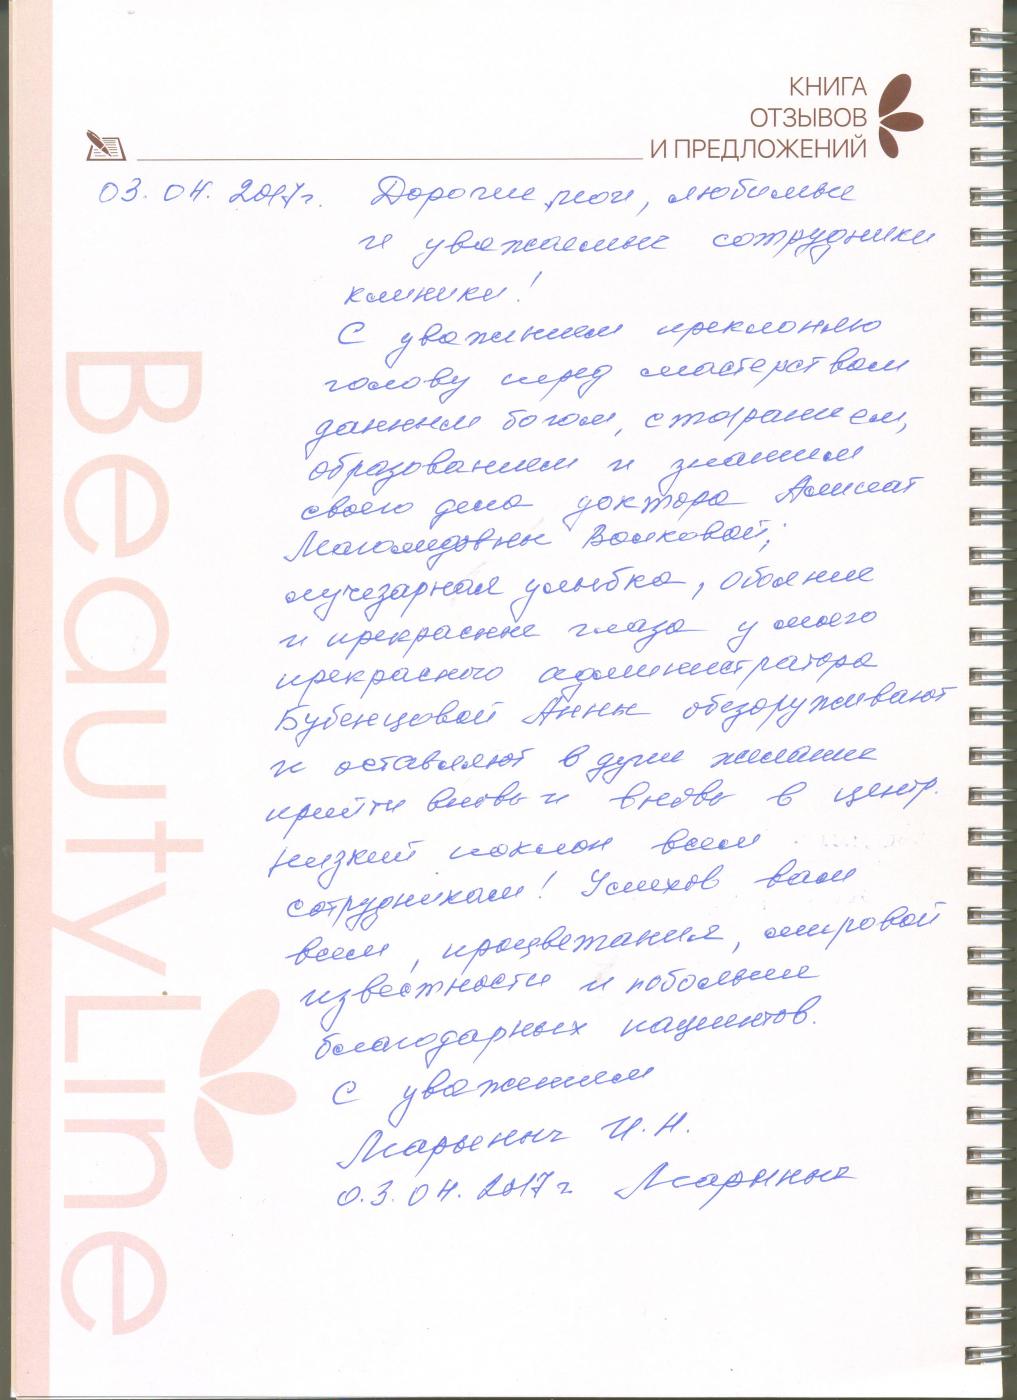 КНИГА
ОТЗЫВОВ
И ПРЕДЛОЖЕНИЙ
03.04.2017г. Дорогие мои, любимые
и уважаемые сотрудники
клиники!
С уважением преклоняю
голову перед мастерством
данным богом, старанием,
образованием и знанием
своего дела доктора Аминат
Магомедовны Волковой;
лучезарная улыбка, обаяние
и прекрасные глаза у моего
прекрасного администратора
Бубенцовой Анны обезоруживают
и оставляют в душе желание
прийти вновь и вновь в центр.
Низкий поклон всем
сотрудникам! Успехов вам
всем, процветания, мировой
известности и побольше
благодарных пациентов.
С уважением
Марыныч И.Н.
03.04.2017г Марыныч
BeautyLine